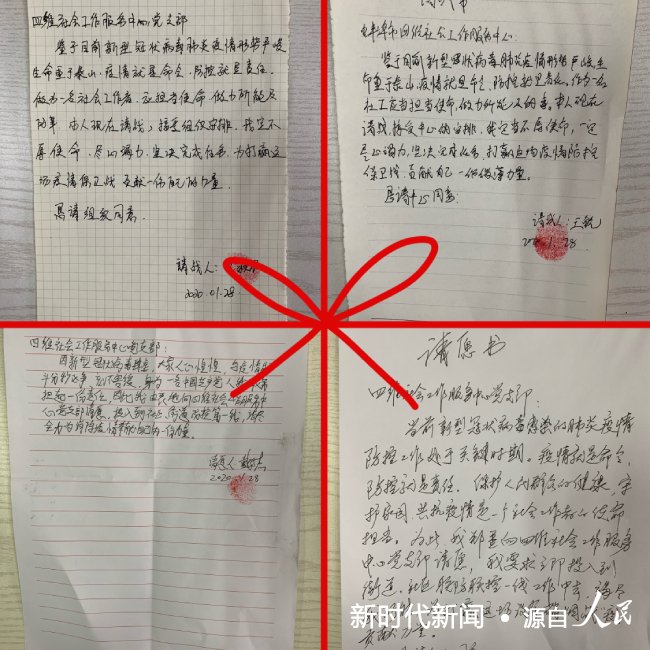 四维社会工作服务中心党支部
鉴于目前新型冠状病毒肺炎疫情形势严峻
生命重于泰山，疫情就是命令，防控就是责任。
做为一名社会工作者，应担当使命，做力所能及
的事，本人现在请战，接受组织安排，我定不
辱使命，尽心竭力，坚决完成任务，为打赢这
场疫情保卫战贡献一份自己的力量。
恳请组织同意。
请战人：
2020.01.28
四维社会工作服务中心：
鉴于目前新型冠状病毒肺炎疫情形势严峻，生
命重于泰山，疫情就是命令，防控就是责任。作为一名
社工应当担当使命，做力所能及的事，本人现在
请战，接受中心的安排，我定当不辱使命，一定
尽心竭力，坚决完成任务，打赢疫情防控
保卫战，贡献自己一份微薄力量。
恳请中心同意
请战人：王
2020.1.28
四维社会工作服务中心党支部：
因新型冠状病毒肺炎，大家人心惶惶，
身为一名中国共产党人
担起一份责任，
心党支部请愿，投入到社区、街道防控第一线，
全力为消除疫情贡献自己的一份力量。
请愿人
2020.1.28
请愿书
四维社会工作服务中心党支部：
当前新型冠状病毒感染的肺炎疫情
防控工作处于关键时期。疫情就是命令，
防控就是责任。保护人民群众的健康，守
护家园，共抗疫情是一个社会工作者的使命
担当。为此，我郑重向四维社会工作服务
中心党支部请愿，我要求立即投入到
街道、社区联防联控一线工作中去，
贡献力量。
新时代新闻 · 源自人民